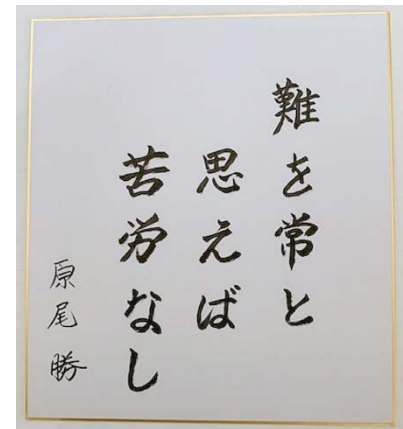 難を常と
思えば
苦労なし
原尾勝